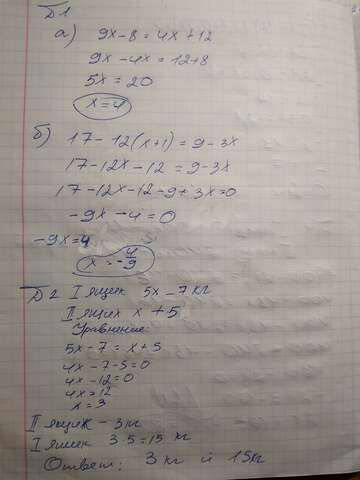 Д1
а) 9x-8=4x+12
9x-4x=12+8
5x=20
x=4
б) 17-12(x+1)=9-3x
17-12x-12=9-3x
17-12x-12-9+3x=0
-9x-4=0
-9x=4
x=-4/9
Д2 I ящик 5x-7кг
II ящик x+5
Уравнение:
5x-7=x+5
4x-7-5=0
4x-12=0
4x=12
x=3
II ящик - 3кг
I ящик 3·5=15 кг
Ответ: 3кг и 15кг